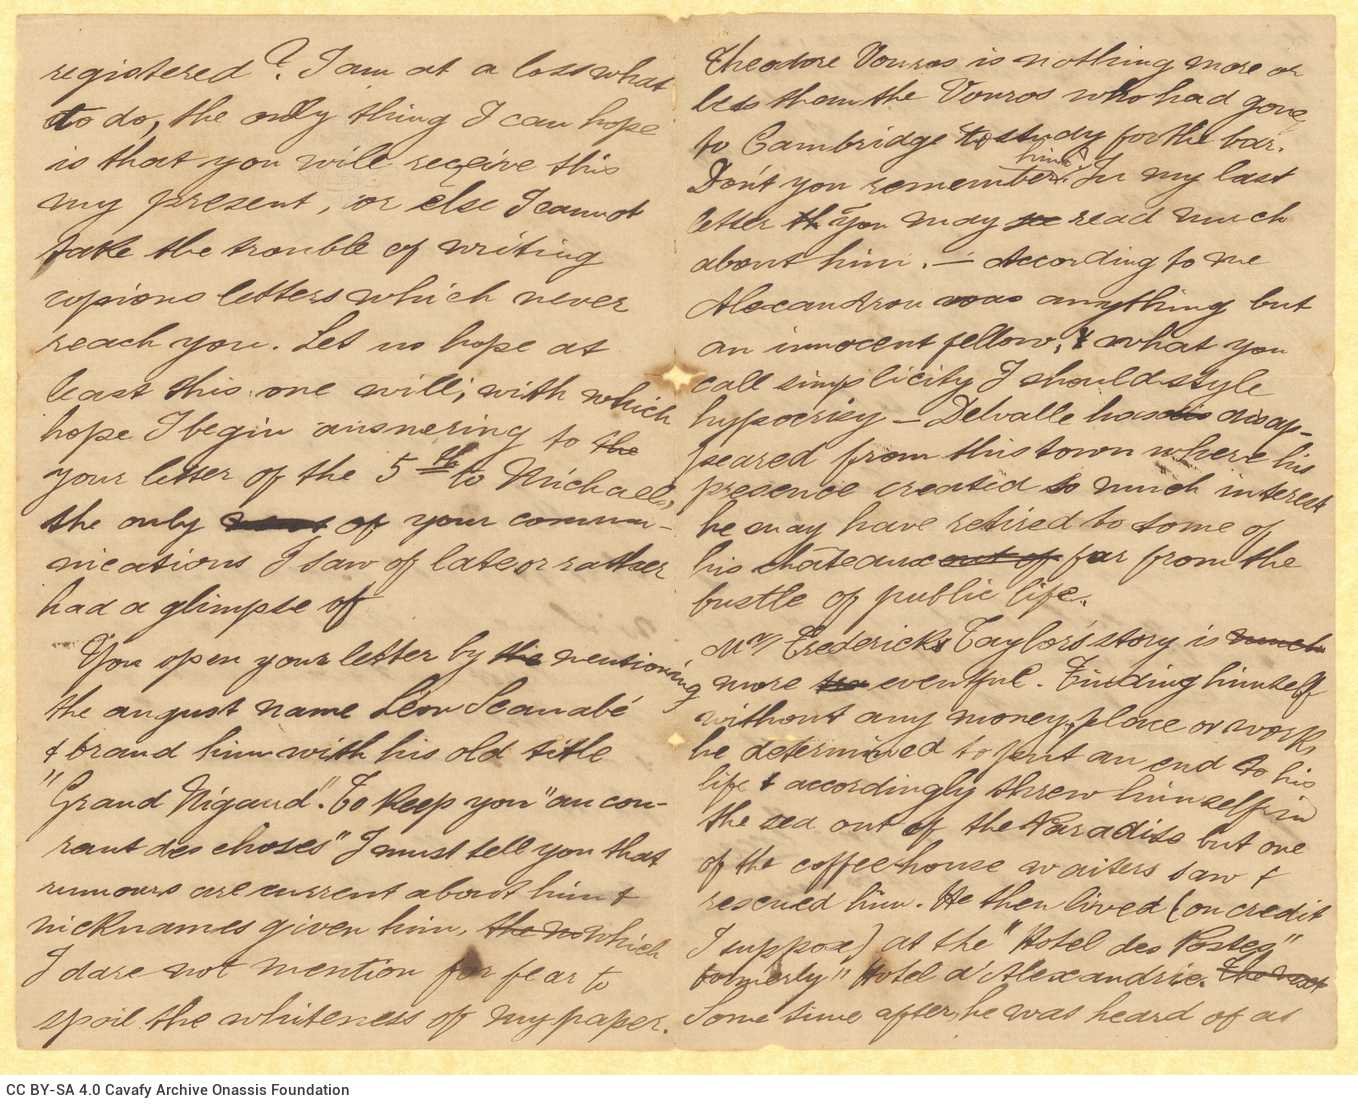 registered? I am at a loss what
to do, the only thing I can hope
is that you will receive this
my present, or else I cannot
take the trouble of writing
copious letters which never
reach you. Let us hope at
least this one will; with which
hope I begin answering to the
your letter of the 5th to Michaels,
the only of your commu-
nications I saw of late or rather
had a glimpse of
You open your letter by the mentioning
the august name Léon Scanabé
& brand him with his old title
"Grand Nigaud". To keep you "au cou-
rant des choses" I must tell you that
rumours are current about him &
nicknames given him, the no which
I dare not mention for fear to
spoil the whiteness of my paper.
Theodore Vouros is nothing more or
less than the Vouros who had gone
to Cambridge to study for the bar.
Don't you remember him? In my last
letter th you may see read much
about him. — According to me
Alexandrou was anything but
an innocent fellow, & what you
call simplicity I should style
hypocrisy — Delvalle has dis disap-
peared from this town where his
presence created so much interest
he may have retired to some of
his châteaux out of far from the
bustle of public life.
Mr Frederick Taylor's story is much
more eventful. Finding himself
without any money, place or work
he determined to put an end to his
life & accordingly threw himself in
the sea out of the Paradiso but one
of the coffeehouse waiters saw &
rescued him. He then lived (on credit
I suppose) at the "Hotel des Postes"
formerly "Hotel d'Alexandrie. The next
Some time after, he was heard of as
CC BY-SA 4.0 Cavafy Archive Onassis Foundation